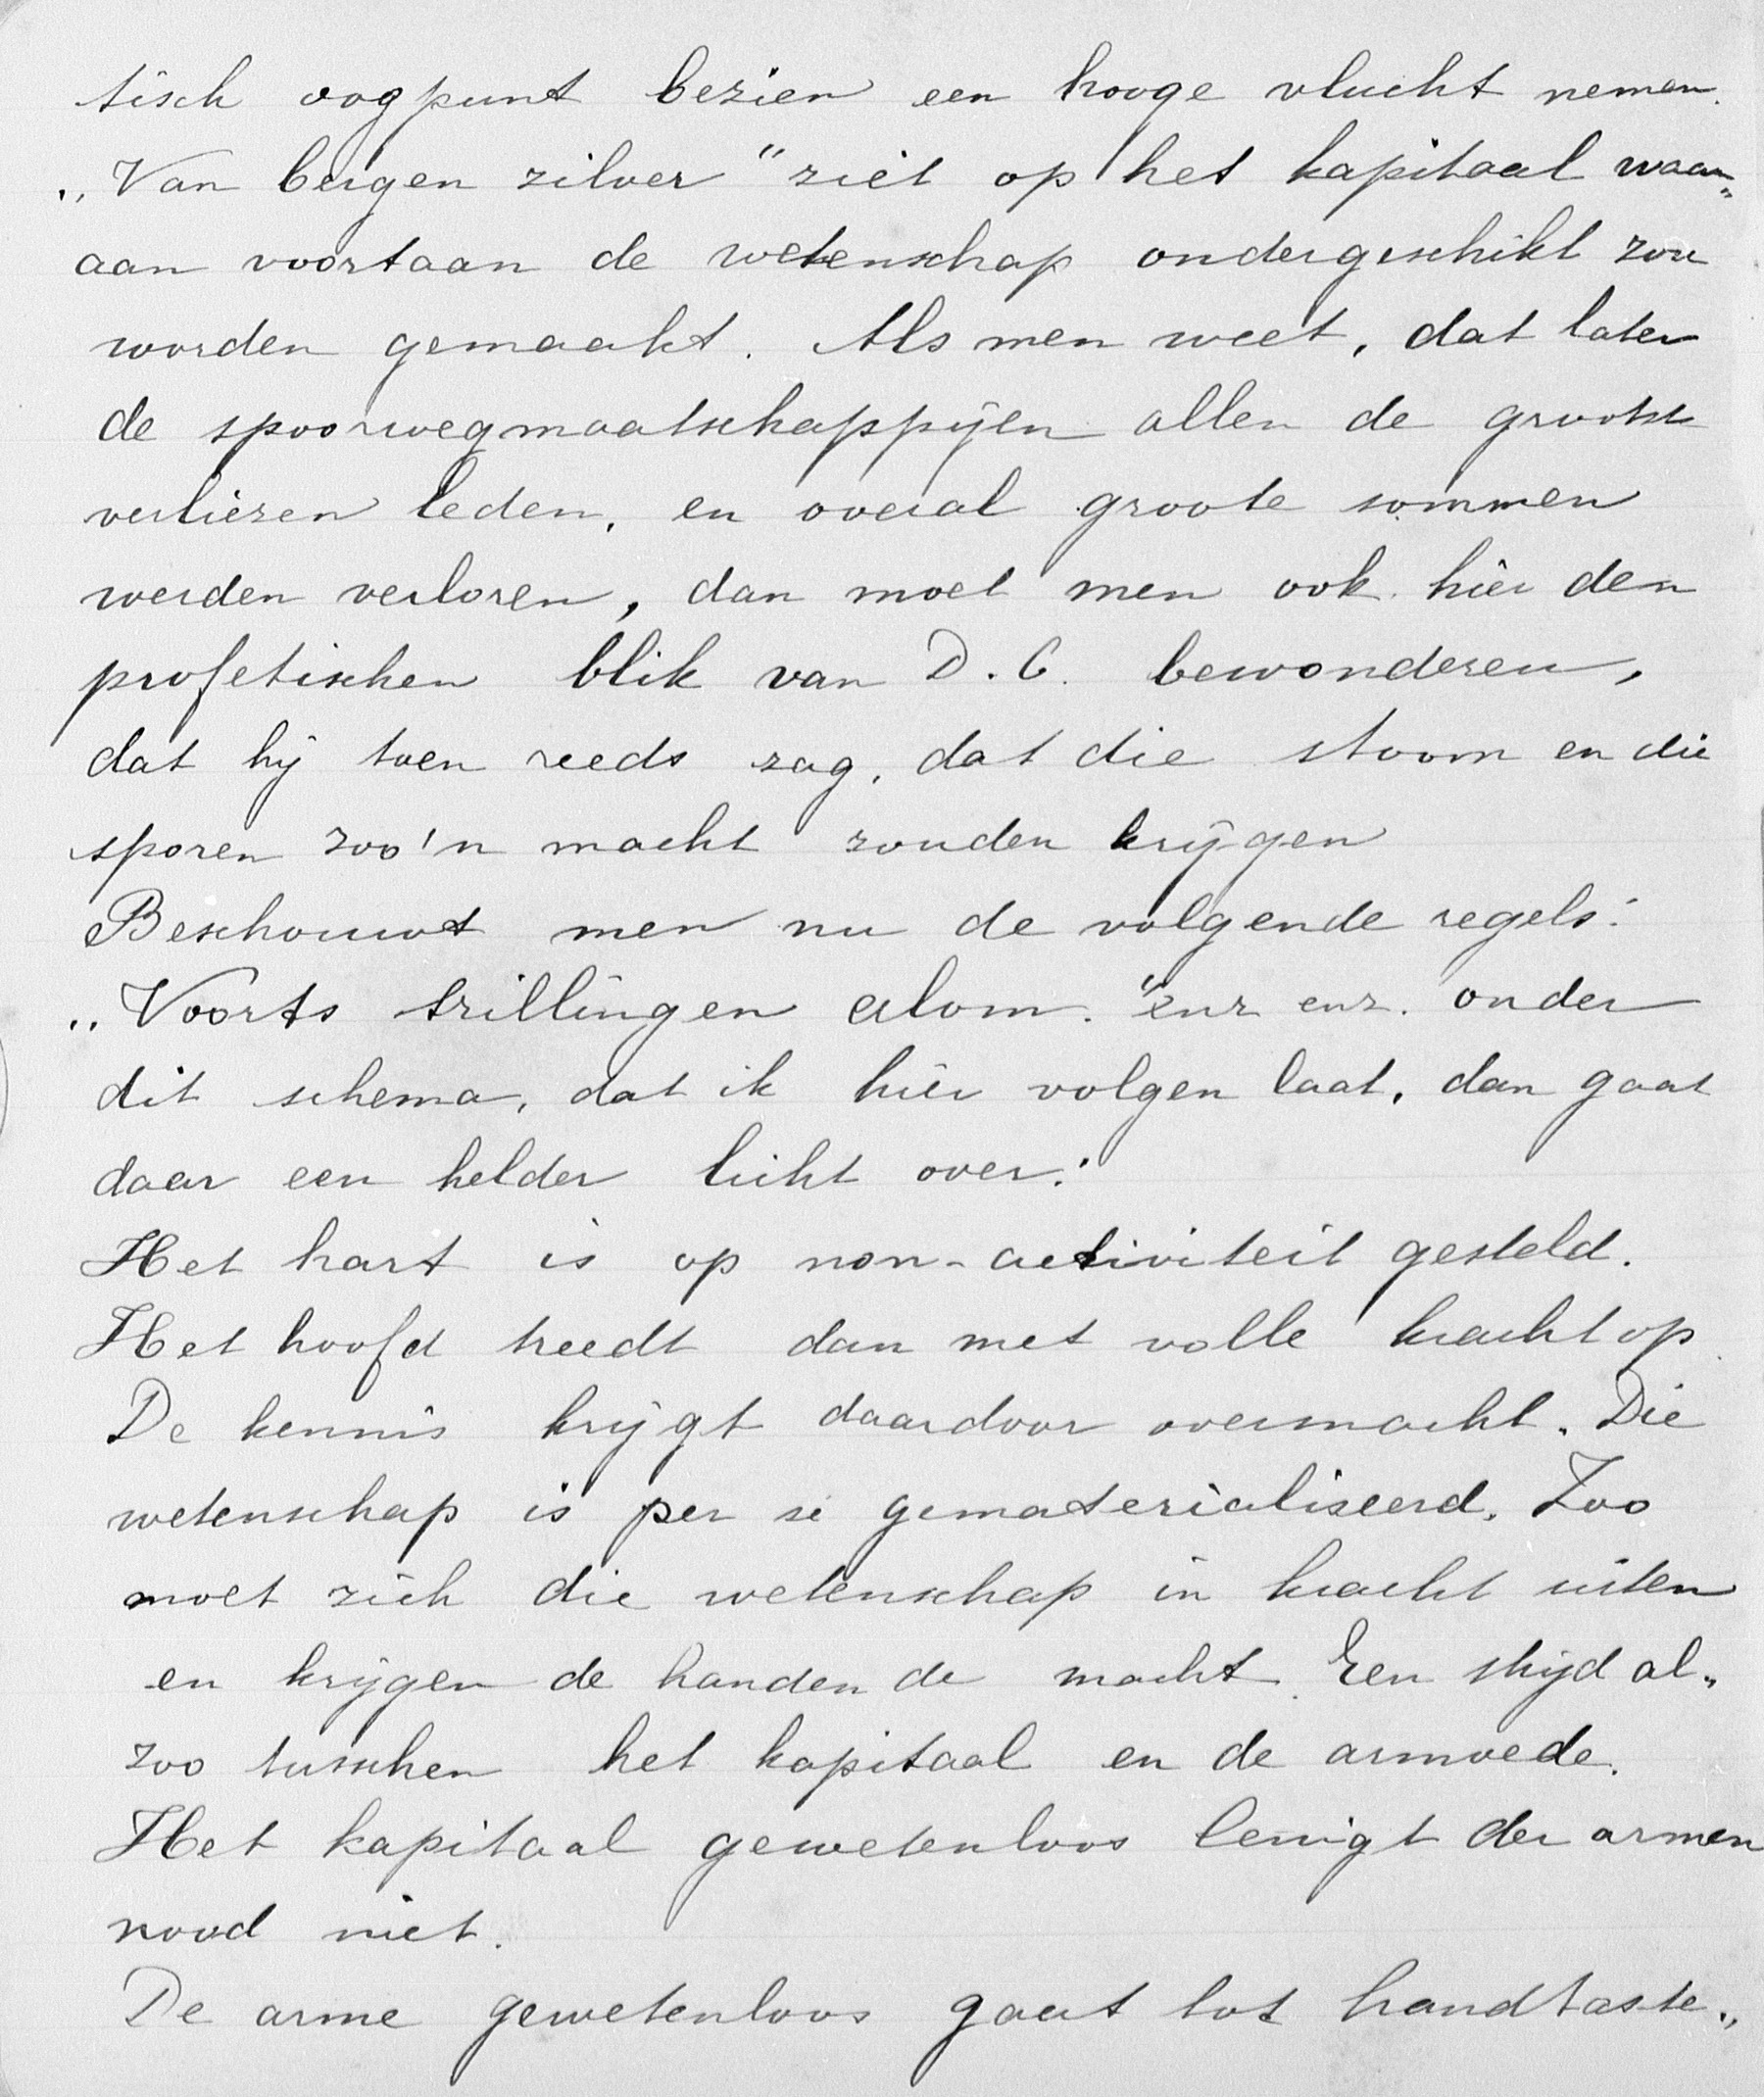 tisch oogpunt bezien een hooge vlucht nemen.
„Van bergen zilver" ziet op het kapitaal waar„
aan voortaan de wetenschap ondergeschikt zou
worden gemaakt. Als men weet, dat later
de spoorwegmaatschappijen allen de grootste
verliezen leden, en overal groote sommen
werden verloren, dan moet men ook hier den
profetischen blik van D. C. bewonderen,
dat hij toen reeds zag, dat die stoom en die
sporen zoo'n macht zouden krijgen
Beschouwt men nu de volgende regels:
„Voorts trillingen alom." enz enz. onder
dit schema, dat ik hier volgen laat, dan gaat
daar een helder licht over:
Het hart is op non-activiteit gesteld.
Het hoofd treedt dan met volle kracht op.
De kennis krijgt daardoor overmacht. Die
wetenschap is per se gematerialiseerd. Zoo
moet zich die wetenschap in kracht uiten
en krijgen de handen de macht. Een strijd al„
zoo tusschen het kapitaal en de armoede.
Het kapitaal gewetenloos lenigt der armen
nood niet.
De arme gewetenloos gaat tot handtaste„